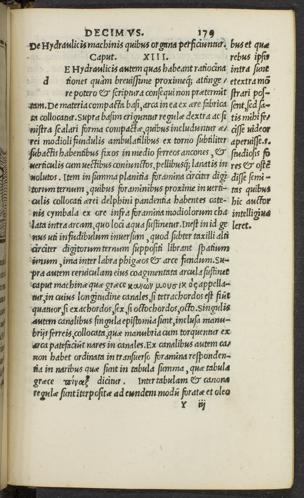 DECIMVS. 179
De Hydraulicis machinis quibus organa perficiuntur.
Caput. XIII.
d E Hydraulicis autem quas habeant ratiocina
tiones quàm breuissime proximeq; attinge/
re potero & scriptura consequi non prætermit
tam. De materia compacta basi, arca in ea ex ære fabrica
ta collocatur. Supra basim eriguntur regulæ dextra ac si
nistra scalari forma compactæ, quibus includuntur æ/
rei modioli fundulis ambulatilibus ex torno subtiliter
subactis habentibus fixos in medio ferreos ancones, &
uerticulis cum uectibus coniunctos, pellibusq; lanatis in
uolutos. Item in summa planitia foramina circiter digi
torum ternum, quibus foraminibus proxime in uerti/
culis collocati ærei delphini pendentia habentes cate/
nis cymbala ex ore infra foramina modiolorum cha
lata intra arcam, quo loci aqua sustinetur. Inest in id ge
nus uti infundibulum inuersum, quod subter taxilli alti
circiter digitorum ternum suppositi librant spatium
imum, ima inter labra phigæos & arcæ fundum. Su/
pra autem ceruiculam eius coagmentata arcula sustinet
caput machinæ quæ græce κανὼν μουσικὸς appella/
tur, in cuius longitudine canales, si tetrachordos est fiūt
quatuor, si exachordos, sex, si octochordos, octo. Singulis
autem canalibus singula epistomia sunt, inclusa manu/
brijs ferreis, collocata, quæ manubria cum torquentur ex
arca patefaciūt nares in canales. Ex canalibus autem ca/
non habet ordinata in transuerso foramina responden/
tia in naribus quæ sunt in tabula summa, quæ tabula
græce πίναξ dicitur. Inter tabulam & canona
regulæ sunt interpositæ ad eundem modū foratæ et oleo
Y iij
bus et quæ
rebus ipsis
intra sunt
et extra mō
strari pos/
sent, sed sa/
tis mihi fe/
cisse uideor
aperuisse.
studiosis fo
res & oste
disse semi/
tas quibus
hic auctor
intelligi ua
leret.